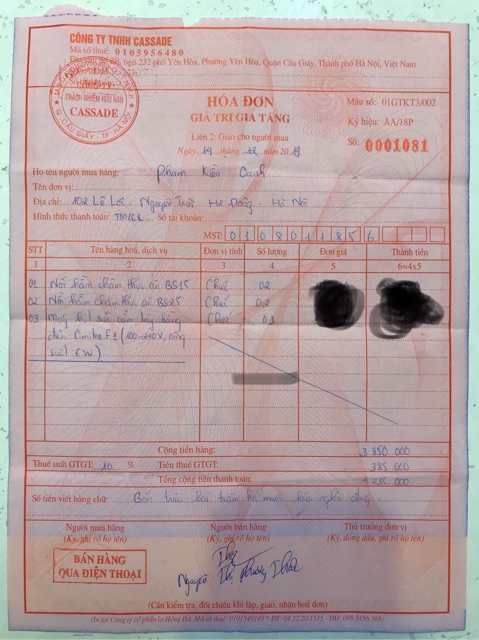 CÔNG TY TNHH CASSADE
Mã số thuế: 0105956480
ngõ 232 phố Yên Hòa, Phường Yên Hòa, Quận Cầu Giấy, Thành phố Hà Nội, Việt Nam
TRÁCH NHIỆM HỮU HẠN
CASSADE
Q. CẦU GIẤY - TP. HÀ NỘI
HÓA ĐƠN
GIÁ TRỊ GIA TĂNG
Liên 2: Giao cho người mua
Ngày 19 tháng 12 năm 2019
Mẫu số: 01GTKT3/002
Ký hiệu: AA/18P
Số: 0001081
Họ tên người mua hàng: Phạm Kiều Oanh
Tên đơn vị:
Địa chỉ: 102 Lê Lợi Nguyễn Trãi Hà Đông Hà Nội
Hình thức thanh toán: TM/CK Số tài khoản:
MST:
STT Tên hàng hoá, dịch vụ Đơn vị tính Số lượng Đơn giá Thành tiền
1 2 3 4 5 6=4x5
01 Nồi hâm cháo thức ăn BS15 Chiếc 02
02 Nồi hâm cháo thức ăn BS25 Chiếc 02
03 Máy hút sữa cầm tay bằng Chiếc 03
điện Cimilre F1 (100-240V, công
suất 5W)
Cộng tiền hàng: 3 850 000
Thuế suất GTGT: 10 % Tiền thuế GTGT: 385 000
Tổng cộng tiền thanh toán: 4 235 000
Số tiền viết bằng chữ: Bốn triệu hai trăm ba mươi lăm nghìn đồng
Người mua hàng Người bán hàng Thủ trưởng đơn vị
(Ký, ghi rõ họ tên) (Ký, ghi rõ họ tên) (Ký, đóng dấu, ghi rõ họ tên)
BÁN HÀNG
QUA ĐIỆN THOẠI
Nguyễn Thị Phương
(Cần kiểm tra, đối chiếu khi lập, giao, nhận hoá đơn)
(In tại Công ty cổ phần in Hồng Hà. Mã số thuế: 0101549140 * ĐT: 04.22.20.1515 - DĐ: 098.3456.368)